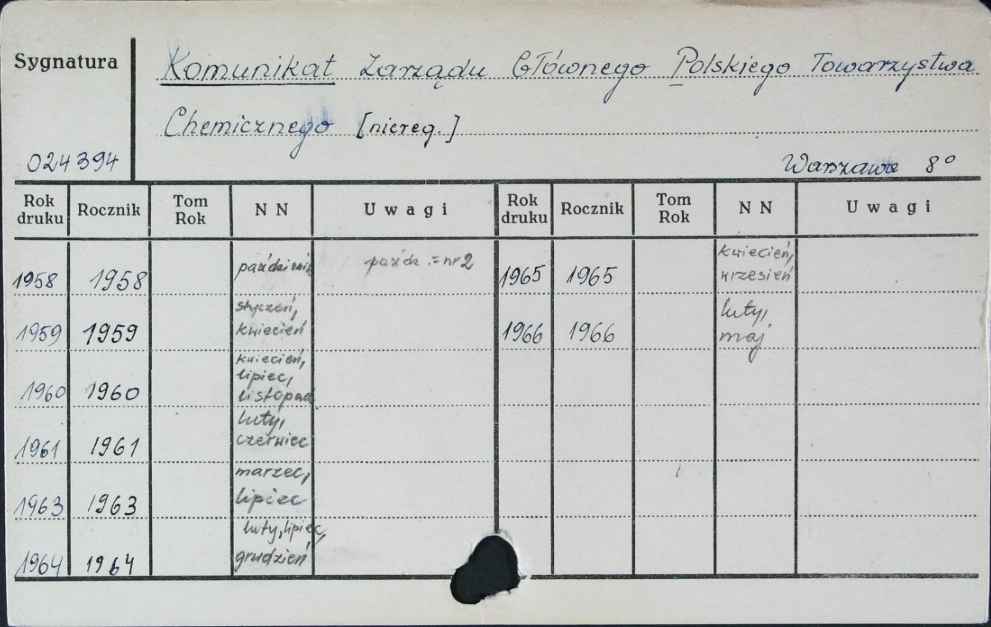 Sygnatura
Komunikat Zarządu Głównego Polskiego Towarzystwa
Chemicznego [niereg.]
024394
Warszawa 8°
Rok druku Rocznik Tom Rok NN Uwagi Rok druku Rocznik Tom Rok NN Uwagi
1958 1958 październik paźdz. = nr 2 1965 1965 kwiecień, wrzesień
1959 1959 styczeń, kwiecień 1966 1966 luty, maj
1960 1960 kwiecień, lipiec, listopad
1961 1961 luty, czerwiec
1963 1963 marzec, lipiec
1964 1964 luty, lipiec, grudzień